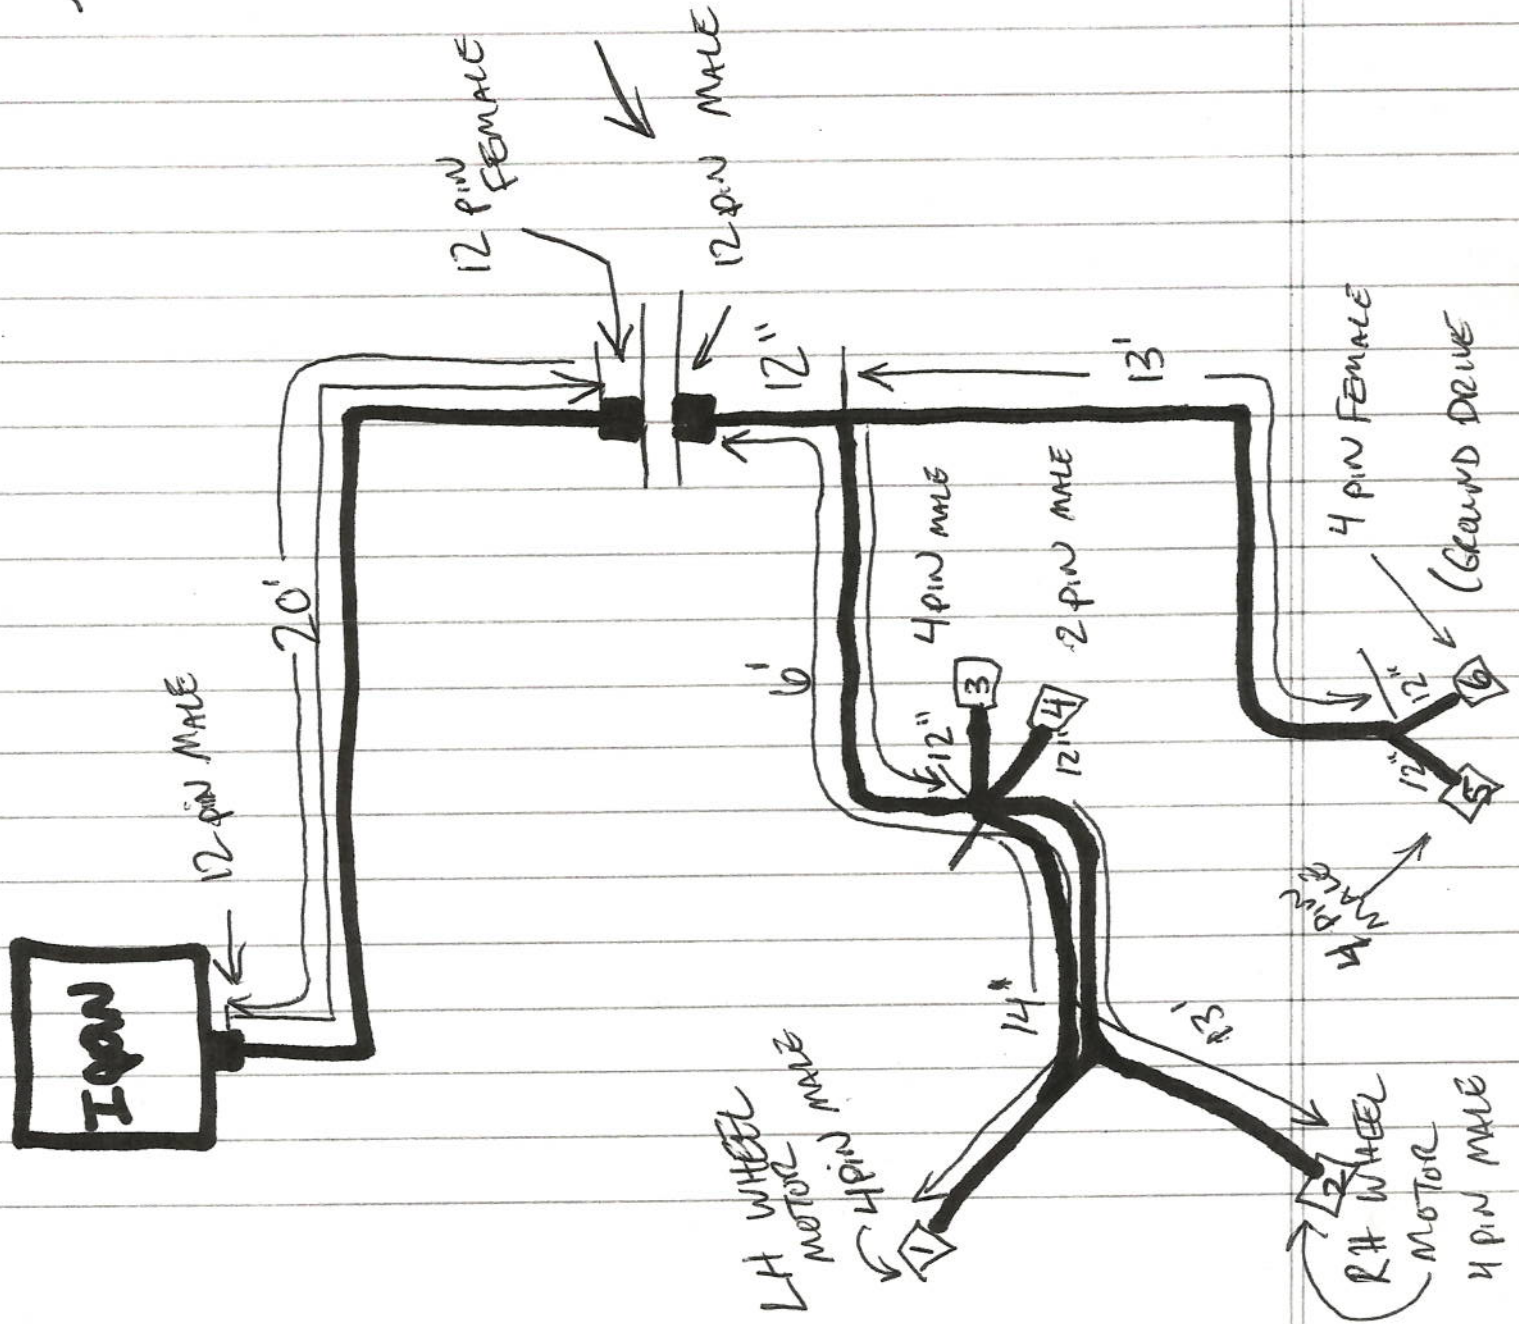 12 PIN
FEMALE
12 PIN MALE
12 PIN MALE
20'
12"
13'
6'
4 PIN MALE
2 PIN MALE
12"
3
4
12"
4 PIN FEMALE
(GROUND DRIVE
12"
6
12"
5
4 PIN
MALE
14"
13'
LH WHEEL
MOTOR
4 PIN MALE
1
2
RH WHEEL
MOTOR
4 PIN MALE